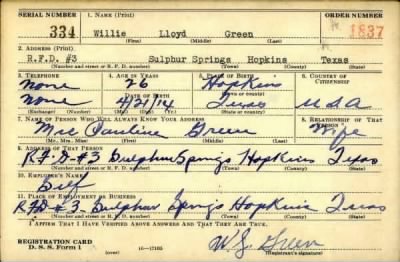 SERIAL NUMBER 1. NAME (Print) ORDER NUMBER
334 Willie Lloyd Green 1837
(First) (Middle) (Last)
2. ADDRESS (Print)
R.F.D. #3 Sulphur Springs Hopkins Texas
(Number and street or R. F. D. number) (Town) (County) (State)
3. TELEPHONE 4. AGE IN YEARS 5. PLACE OF BIRTH 6. COUNTRY OF CITIZENSHIP
none 26 Hopkins
(Town or county)
DATE OF BIRTH
none 4/21/14 Texas USA
(Exchange) (Number) (Mo.) (Day) (Yr.) (State or country)
7. NAME OF PERSON WHO WILL ALWAYS KNOW YOUR ADDRESS 8. RELATIONSHIP OF THAT PERSON
Mrs Pauline Green Wife
(Mr., Mrs., Miss) (First) (Middle) (Last)
9. ADDRESS OF THAT PERSON
R.F.D #3 Sulphur Springs Hopkins Texas
(Number and street or R. F. D. number) (Town) (County) (State)
10. EMPLOYER'S NAME
Self
11. PLACE OF EMPLOYMENT OR BUSINESS
RFD #3 Sulphur Springs Hopkins Texas
(Number and street or R. F. D. number) (Town) (County) (State)
I AFFIRM THAT I HAVE VERIFIED ABOVE ANSWERS AND THAT THEY ARE TRUE.
REGISTRATION CARD
D. S. S. Form 1 (over) 16—17105 W L Green
(Registrant's signature)